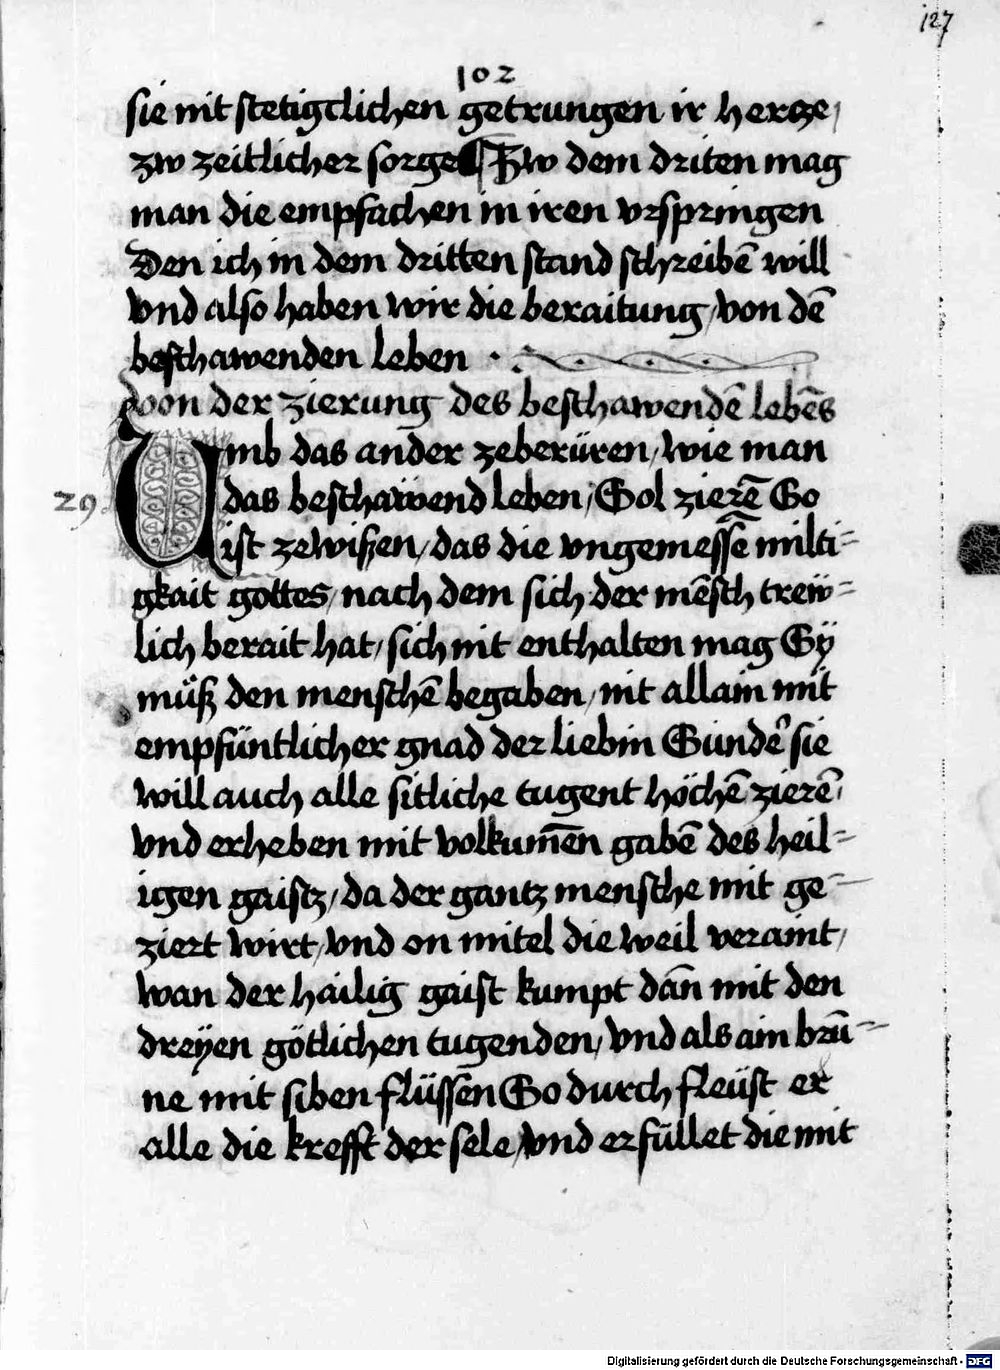 127
102
sie nit stetigclichen getrungen ir hertze,
zw zeitlicher sorge ¶ Zw dem driten mag
man die empfachen in iren vrspringen
Den ich in dem dritten stand schreibē will
vnd also haben wir die beraitung, von dē
beschawenden leben .
von der zierung des beschawendē lebēs
Umb das ander zeberüren, wie man
29 das beschawend leben, Sol zierē So
ist zewißen, das die vngemessēē milti-
gkait gottes, nach dem sich der mēsch trew-
lich berait hat, sich nit enthalten mag Sÿ
müß den menschē begaben, nit allain mit
empfüntlicher gnad der liebin Sunder sie
will auch alle sitliche tugent höchē zierē,
vnd erheben mit volkumēn gabē des heil-
igen gaistz, da der gantz mensche mit ge-
ziert wirt, vnd on mitel die weil veraint,
wan der hailig gaist kumpt dān mit den
dreÿen götlichen tugenden, vnd als ain brū-
ne mit siben flüssen So durch fleüst er
alle die krefft der sele, vnd erfüllet die mit
Digitalisierung gefördert durch die Deutsche Forschungsgemeinschaft - DFG